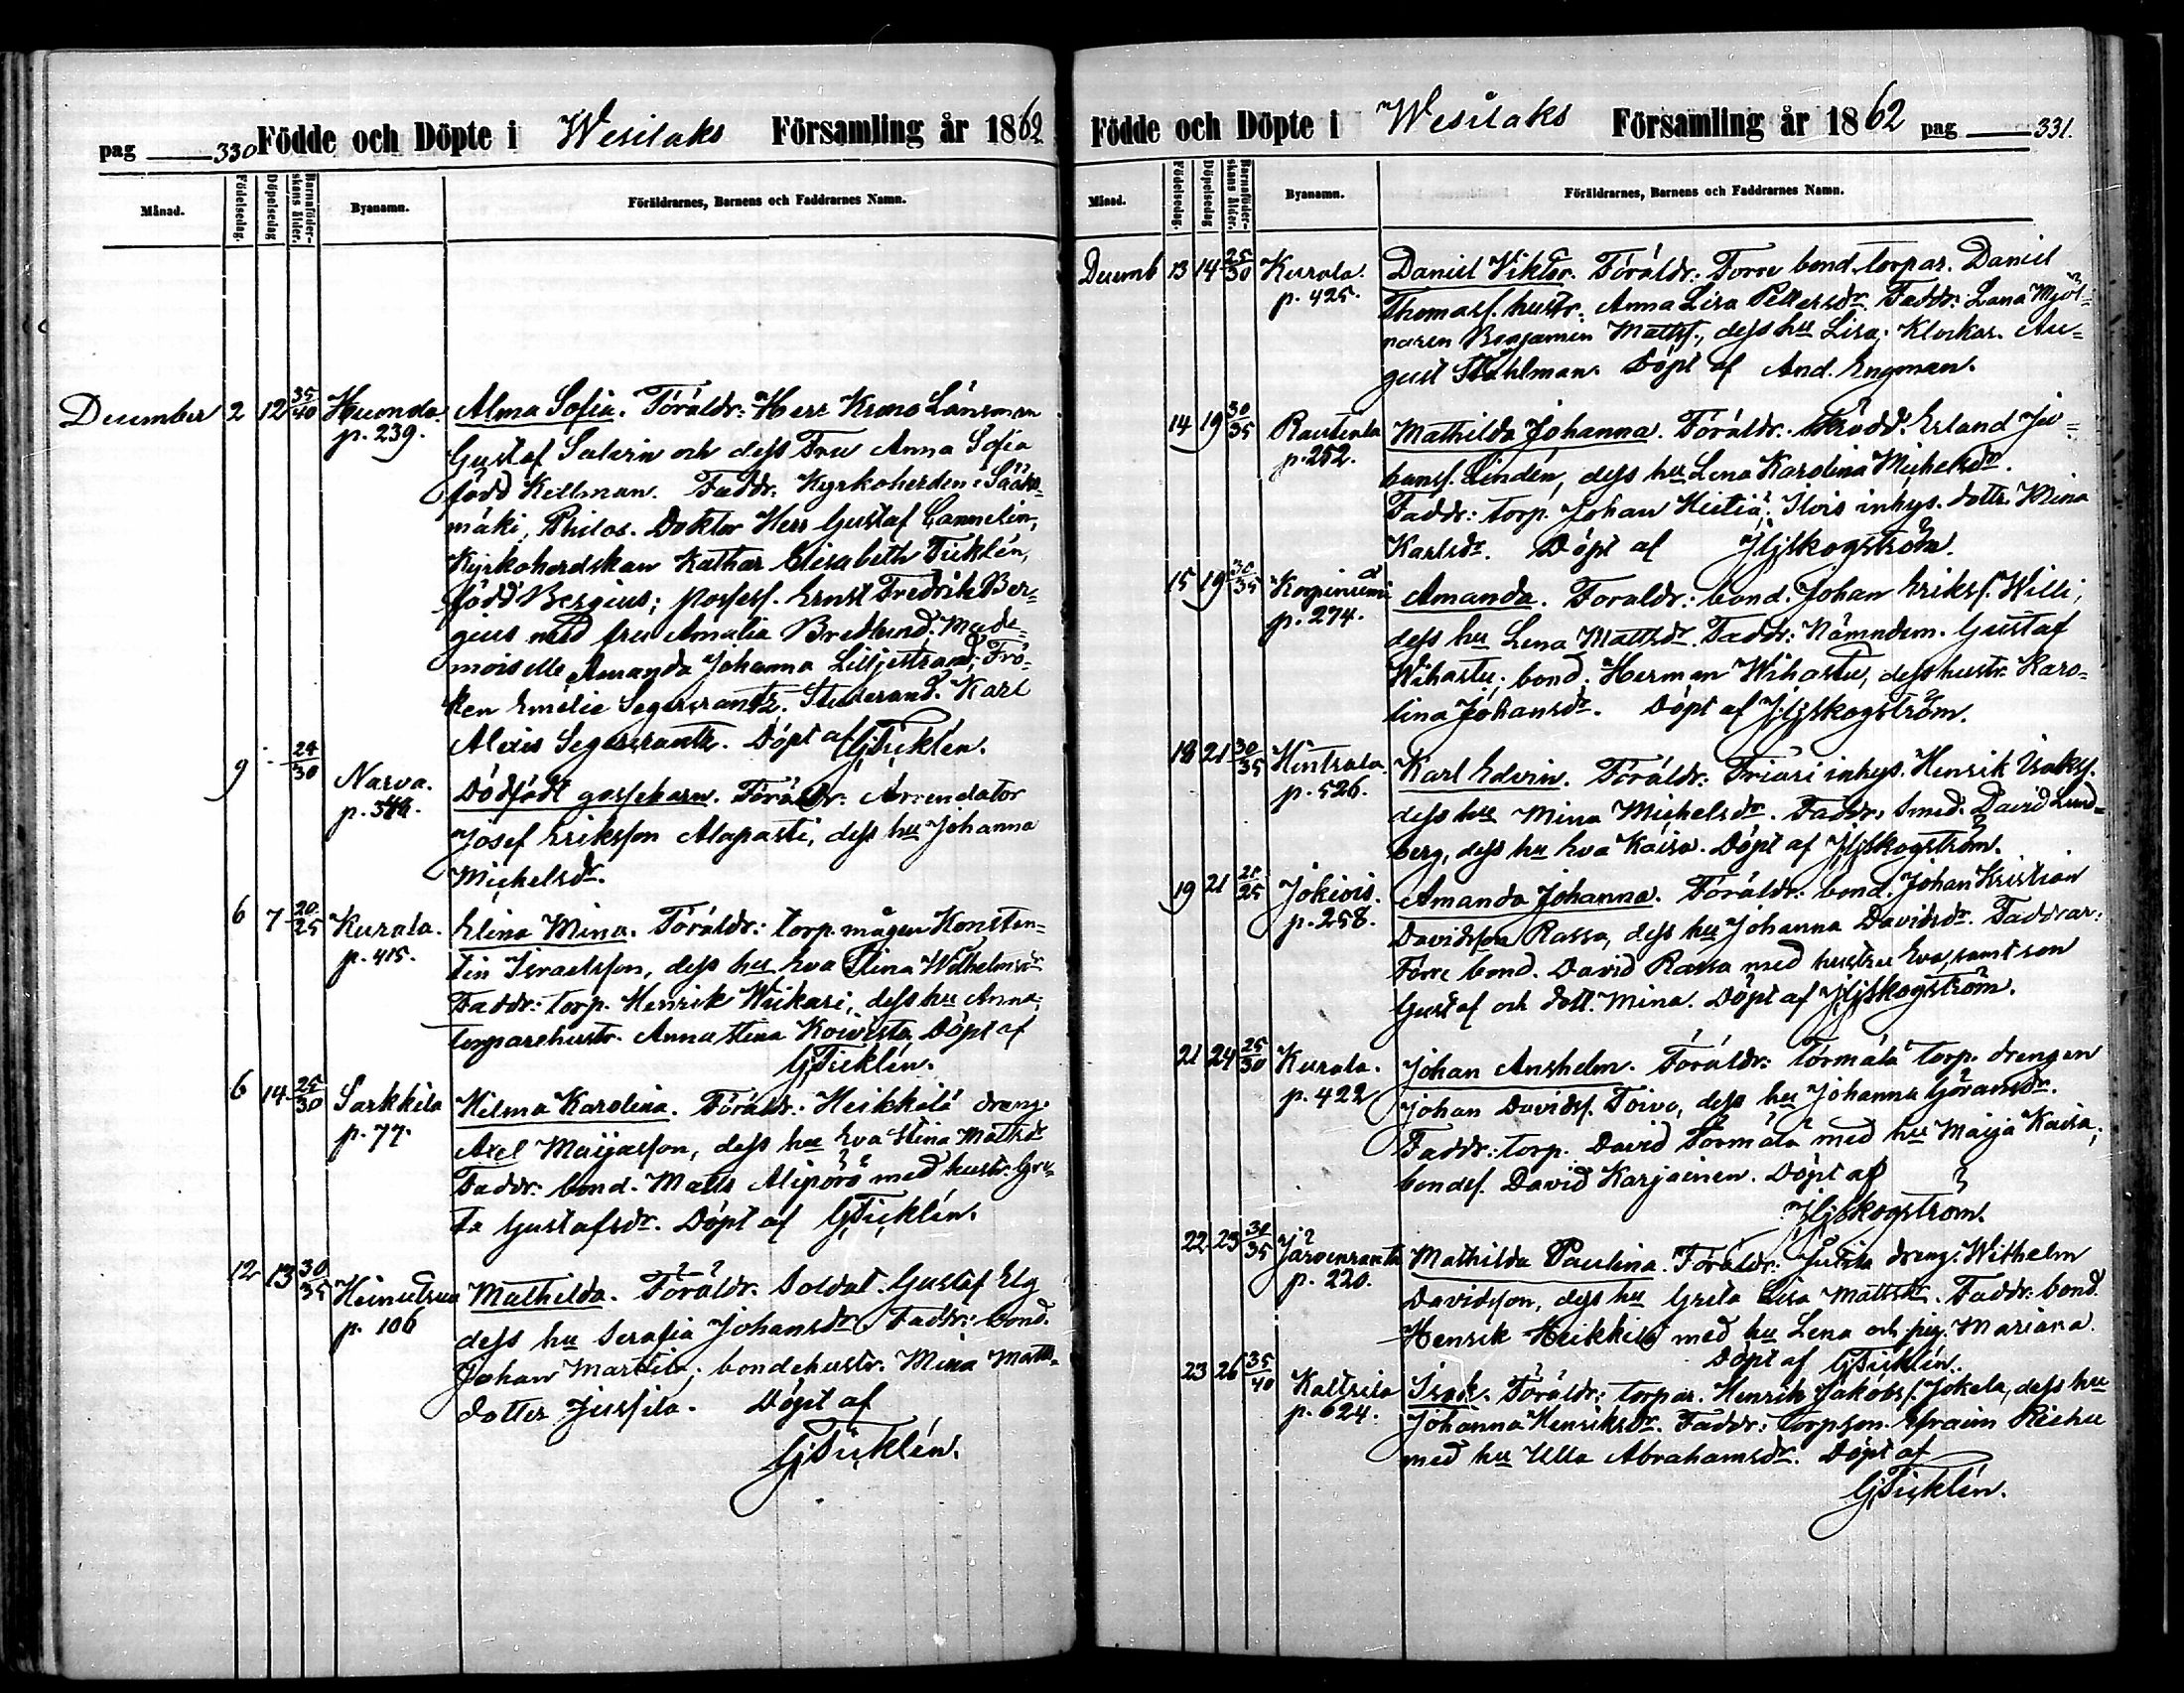 pag 330 Födde och Döpte i Wesilaks Församling år 1862
Månad. Födelsedag. Döpelsedag Barnaföderskans ålder. Byanamn. Föräldrarnes, Barnens och Faddrarnes Namn.
December 2 12 35/40 Kuonda. Alma Sofia. Föräldr: Herr Krono Länsman
p. 239. Gustaf Salvin och dess Fru Anna Sofia
född Kellman. Faddr. Kyrkoherden i Sääks-
mäki, Philos. Doktor Herr Gustaf Cannelin,
Kyrkoherdskan Kathar Elisabeth Ticklén,
född Bergius; possess. Ernst Fredrik Ber-
gius med fru Amalia Bredlund; Made-
moiselle Amanda Johanna Lilljestrand; Frö-
ken Emelie Segercrantz. Studerand. Karl
Alexis Segercrantz. Döpt af GTicklén.
9 - 24/30 Narva. Dödfödt gossebarn. Föräldr: Arrendator
p. Josef Eriksson Alapasti, dess hu Johanna
Michelsdr.
6 7 20/25 Kurala. Elina Mina. Föräldr: torp.mågen Konstan-
p. 415. tin Israelsson, dess hu Eva Stina Wilhelmsdr
Faddr: torp. Henrik Wiikari, dess hu Anna;
torparehustr. Anna Stina Koivisto Döpt af
GTicklén.
6 14 25/30 Sarkkila Hilma Karolina. Föräldr: Heikkilä dreng.
p. 77. Axel Maijasson, dess hu Eva Stina Mattsdr
Faddr: bond. Matts Alipörö med hustr. Gre-
ta Gustafsdr. Döpt af GTicklén.
12 13 30/35 Heinudsuu Mathilda. Föräldr. Soldat. Gustaf Elg
p. 106 dess hu Serafia Johansdr Faddr: bond.
Johan Marttila; bondehustr. Mina Matts-
dotter Jussila. Döpt af
GTicklén.
Födde och Döpte i Wesilaks Församling år 1862 pag 331.
Månad. Födelsedag. Döpelsedag Barnaföderskans ålder. Byanamn. Föräldrarnes, Barnens och Faddrarnes Namn.
Decemb 13 14 25/30 Kurala. Daniel Viktor. Föräldr: Torre bond. torpar. Daniel
p. 425. Thomass. hustr. Anna Lisa Pettersdr. Faddr: Lana Mjöl-
naren Benjamin Mattss., dess hu Lisa; Klockar. Au-
gust Ståhlman. Döpt af And. Engman.
14 19 30/35 Rautiala Mathilda Johanna. Föräldr. Skrädd. Erland Ja-
p. 252. kobss. Lindén, dess hu Lena Karolina Michelsdr.
Faddr: torp. Johan Hietia; Ilois inhys. dottr. Mina
Karlsdr. Döpt af JHjskogström.
15 19 30/35 Korpiniemi Amanda. Föräldr: bond. Johan Erikss. Willi,
p. 274. dess hu Lena Mattsdr. Faddr: Nämndem. Gustaf
Wihastu; bond. Herman Wihastu, dess hustr. Karo-
lina Johansdr. Döpt af JHjskogström.
18 21 30/35 Hintsala. Karl Edvin. Föräldr: Friari inhys. Henrik Isakss.
p. 526. dess hu Mina Michelsdr. Faddr: Smed. David Lind-
berg, dess hu Eva Kaisa. Döpt af JHjskogström.
19 21 /25 Jokiois. Amanda Johanna. Föräldr: bond. Johan Kristian
p. 258. Davidsson Rassa, dess hu Johanna Davidsdr. Faddrar:
Förre bond. David Rassa med hustru Eva, samt son
Gustaf och dott. Mina. Döpt af JHjskogström.
21 24 25/30 Kurala. Johan Anshelm. Föräldr: Törmälä torp. drengen
p. 422 Johan Davidss. Toivo, dess hu Johanna Göransdr.
Faddr: torp. David Törmälä med hu Maija Kaisa;
bondes. David Karjainen. Döpt af
JHjskogström.
22 23 30/35 Järvenranta Mathilda Paulina. Föräldr: dreng. Wilhelm
p. 220. Davidsson, dess hu Greta Lisa Mattsdr. Faddr: bond.
Henrik Heikkilä med hu Lena och pig. Mariana.
Döpt af GTicklén.
23 26 35/40 Kaltsila Isak. Föräldr: torpar. Henrik Jakobss. Jokela, dess hu
p. 624. Johanna Henriksdr. Faddr: torpson. Efraim Riehu
med hu Ulla Abrahamsdr. Döpt af
GTicklén.